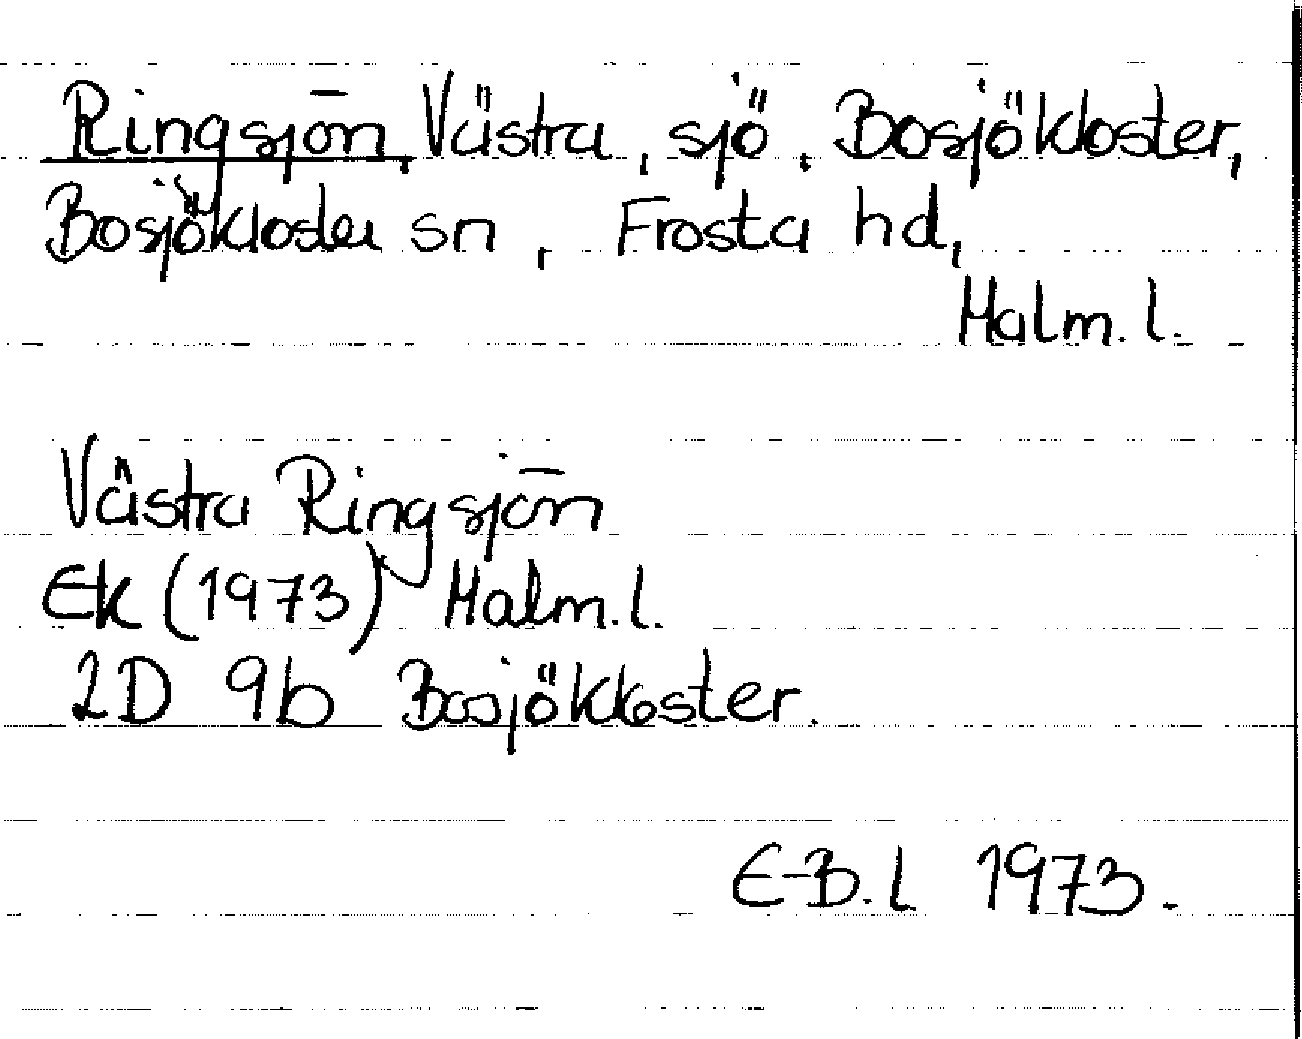 Ringsjön, Västra, sjö, Bosjökloster,
Bosjökloster sn, Frosta hd,
Malm. l.
Västra Ringsjön
Ek (1973) Malm. l.
2D 9b Bosjökloster.
E-B. L 1973.